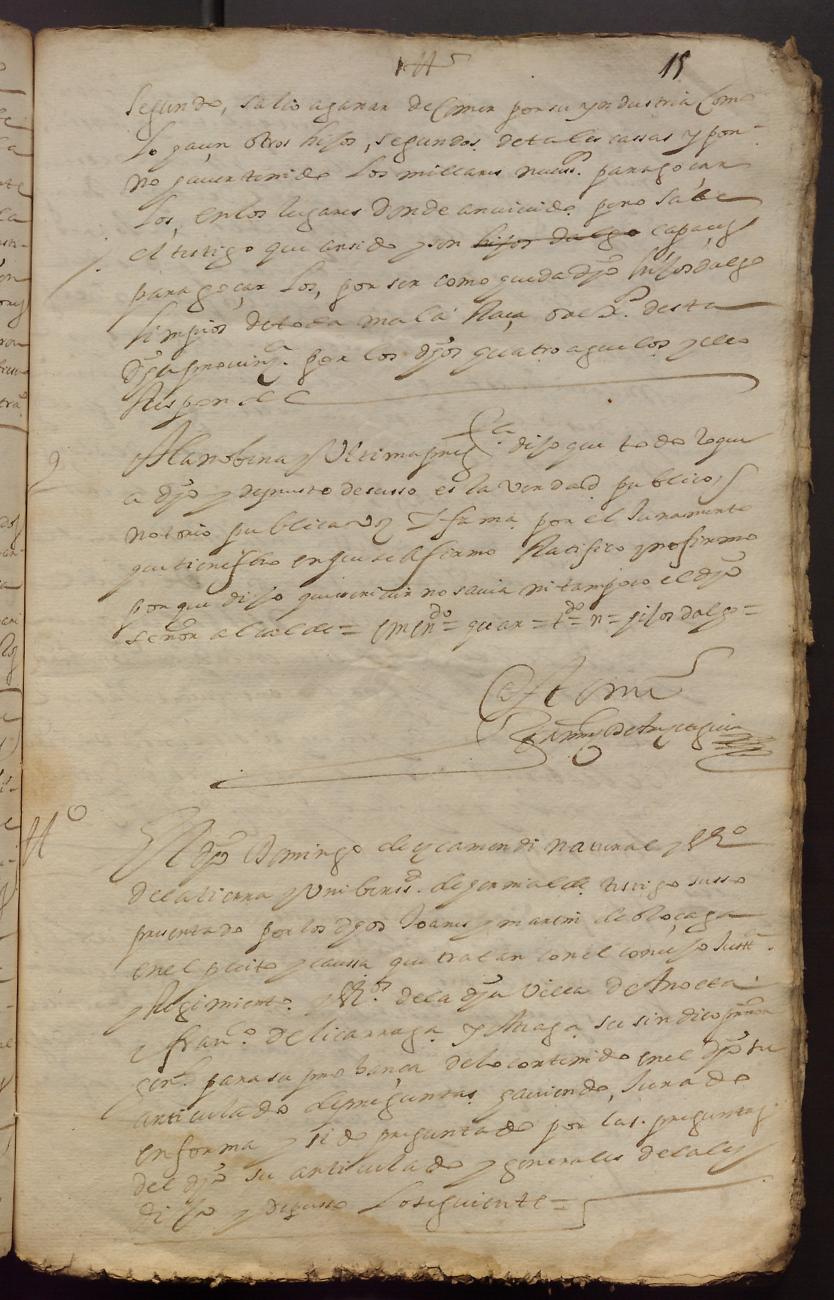 15
segundo, salio aganar decomer por su yndustria como
lo haçen otros hijos, segundos de tales cassas y por
no haver tenido los millares neçess.os para goçar
los, en los lugares donde an vivido pero save
el testigo que an sido y son hijos dalgo capaçes
para goçar los, por ser como queda dho hijosdalgo
limpios de toda mala Raça desta
dha provinç.a por los dhos quatro aguelos y esto
Responde
9 A la nobena y Ultima preg.ta dijo que todo lo que
a dho y depuesto de susso es la verdad publico y
notorio publica voz y fama por el Juramento
que tiene fho en que se afirmo Ratifico y no firmo
por que dijo que screvir no savia ni tampoco el dho
señor alcalde = em.do = = t.do = n = hijos dalgo =
Ante mi
t.o El dho Domingo de yçamendi natural y v.o
de la tierra y Unibersi.d de jermialde testigo susso
presentado por los dhos Joanes y martin de oloçaga
en el pleito y caussa que tratan con el conçejo Just.a
y Regimiento y v.os de la dha Villa de Anoeta
e fran.co de liçarraga y Anaga su sindico pr.or
gen.l para su probança de lo contenido en el dho su
articulado de preguntas haviendo, Jurado
en forma y sido preguntado por las preguntas
del dho su articulado y generales de la ley
dijo y depusso lo siguiente =